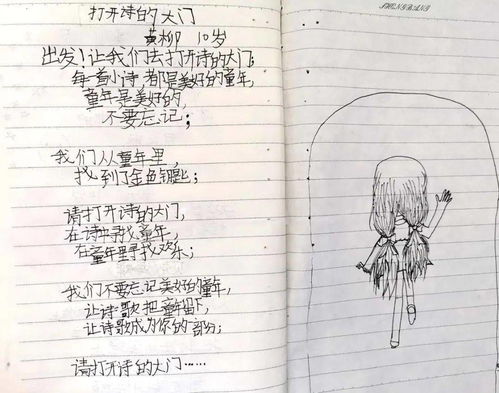 打开诗的大门
黄柳 10岁
出发!让我们去打开诗的大门,
每一首小诗,都是美好的童年,
童年是美好的,
不要忘记;
我们从童年里,
找到了金鱼钥匙;
请打开诗的大门,
在诗中寻找童年,
在童年里寻找欢乐;
我们不要忘记美好的童年,
让诗歌把童年留下,
让诗歌成为你的一部分;
请打开诗的大门……